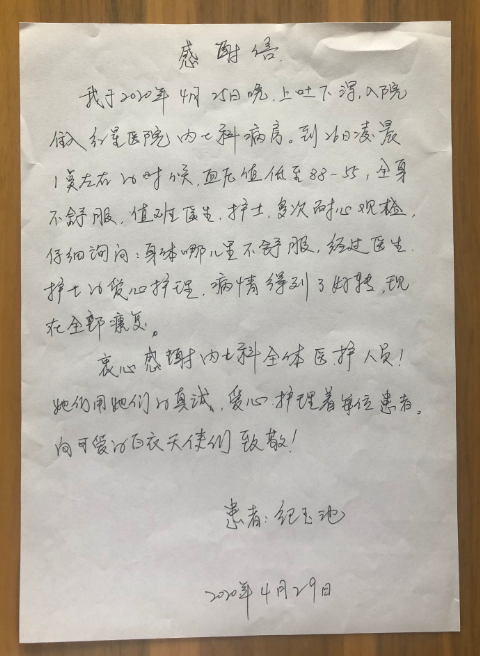 感谢信
我于2020年4月25日晚，上吐下泻，入院
住入红星医院内七科病房。到26日凌晨
1点左右的时候，血压值低至88-55，全身
不舒服，值班医生，护士，多次耐心观检，
仔细询问：身体哪儿里不舒服，经过医生，
护士的爱心护理，病情得到了好转，现
在全部康复。
衷心感谢内七科全体医护人员！
她们用她们的真诚，爱心，护理着每位患者。
向可爱的白衣天使们致敬！
患者：纪玉池
2020年4月29日